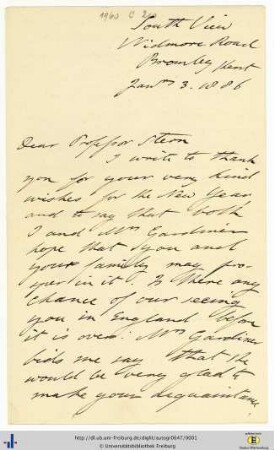 South View
Widmore Road
Bromley Kent
Jany 3. 1886
Dear Professor Stern
I write to thank
you for your very kind
wishes for the New Year
and to say that both
I and Mrs Gardiner
hope that you and
your family may pro-
sper in it. Is there any
chance of our seeing
you in England before
it is over? Mrs Gardiner
bids me say that she
would be very glad to
make your acquaintance
http://dl.ub.uni-freiburg.de/diglit/autogr0647/0001
© Universitätsbibliothek Freiburg